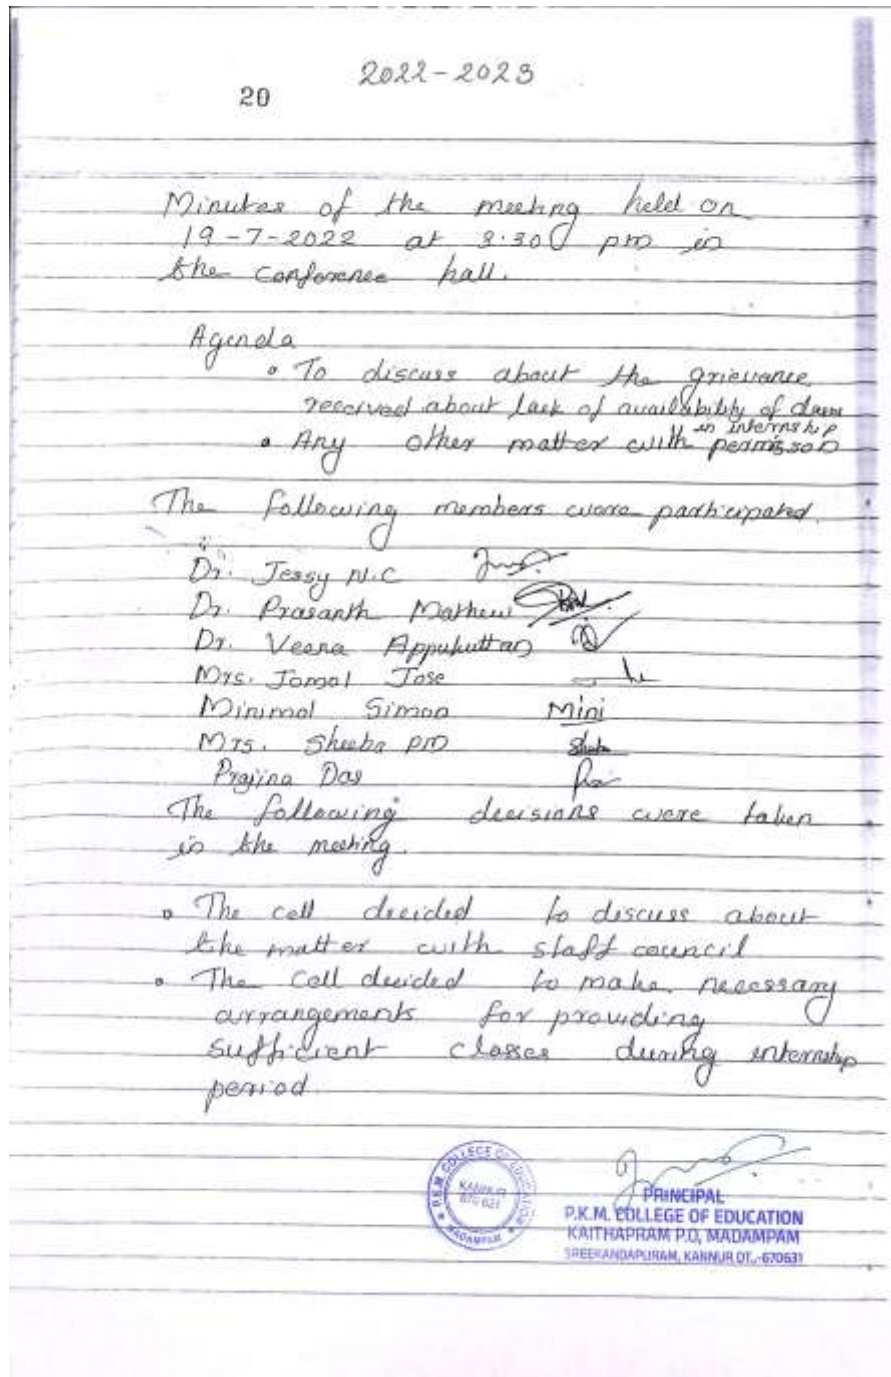 2022-2023
20
Minutes of the meeting held on
19-7-2022 at 3:30 pm in
the conference hall.
Agenda
• To discuss about the grievance
received about lack of availability of classes
in internship
• Any other matter with permisson
The following members were participated.
Dr. Jessy N.C
Dr. Prasanth Mathew
Dr. Veena Appukuttan
Mrs. Jomol Jose
Minimol Simon Mini
Mrs. Sheeba PM Sheeba
Prajina Das
The following decisions were taken
in the meeting.
• The cell decided to discuss about
the matter with staff council
• The cell decided to make necessary
arrangements for providing
sufficient classes during internship
period.
P.K.M. COLLEGE OF EDUCATION
KANNUR
670 631
MADAMPAM
PRINCIPAL
P.K.M. COLLEGE OF EDUCATION
KAITHAPRAM P.O, MADAMPAM
SREEKANDAPURAM, KANNUR DT.,-670631